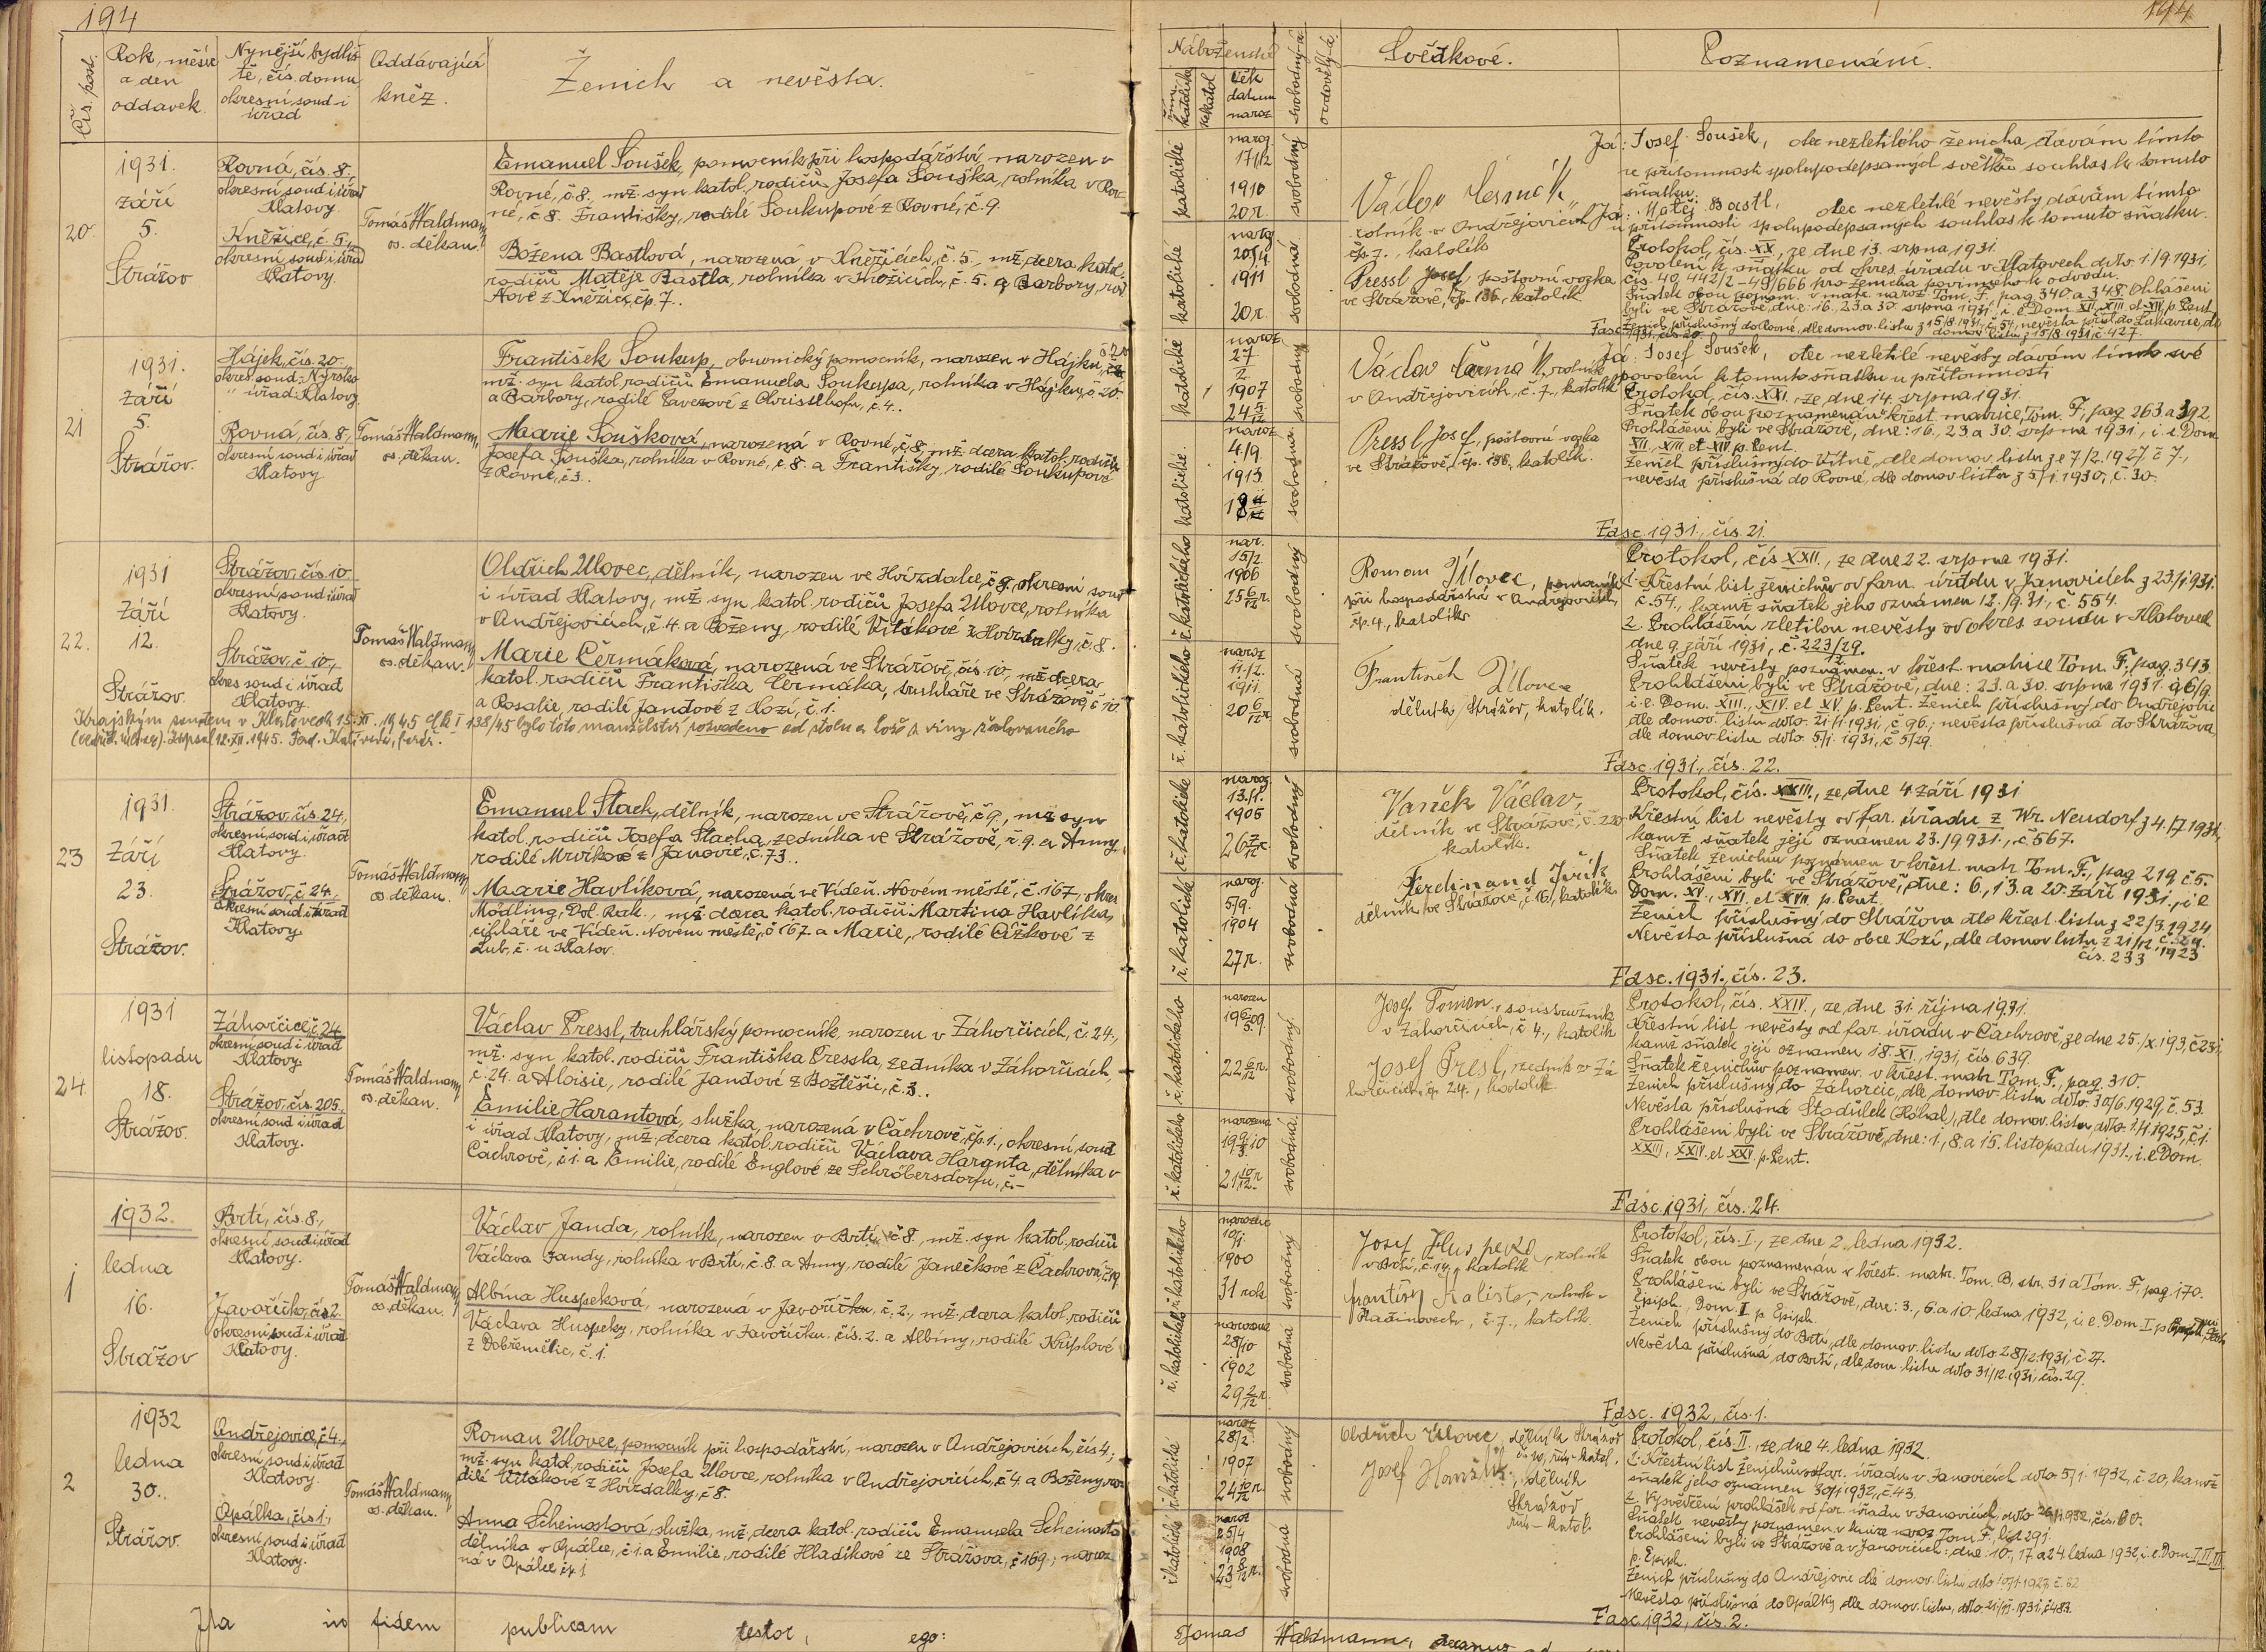 194
Čís. post.
Rok, měsíc
a den
oddavek.
Nynější bydliš-
tě, čís. domu
okresní soud-i
úřad
Oddávající
kněz.
Ženich a nevěsta.
20.
1931.
září
5.
Strážov
Rovná, čís. 8.,
okresní soud i úřad
Klatovy.
Kněžice, č. 5.,
okresní soud i úřad
Klatovy.
Tomáš Waldmann,
os. děkan.
Emanuel Soušek, pomocník při hospodářství, narozen v
Rovné, č. 8., mž. syn katol. rodičů Josefa Souška, rolníka v Rov-
né, č. 8. Františky, rodilé Soukupové z Rovné, č. 9.
Božena Bastlová, narozená v Kněžicích, č. 5., mž. dcera katol.
rodičů Matěje Bastla, rolníka v Kněžicích, č. 5. a Barbory, rod.
z Kněžic, čp. 7..
21
1931.
září
5.
Strážov.
Hájek, čís. 20.
okres. soud: Nýrsko
" úřad: Klatovy.
Rovná, čís. 8.,
okresní soud i úřad
Klatovy
Tomáš Waldmann,
os. děkan.
František Soukup, obuvnický pomocník, narozen v Hájku, č. 20
mž. syn katol. rodičů Emanuela Soukupa, rolníka v Hájku, č. 20.
a Barbory, rodilé z Christlhofu, č. 4..
Marie Soušková, narozená v Rovné, č. 8, mž. dcera katol. rodičů
Josefa Souška, rolníka v Rovné, č. 8. a Františky, rodilé Soukupové
z Rovné, č. 3..
22.
1931
září
12.
Strážov.
Strážov, čís. 10
okresní soud i úřad
Klatovy.
Strážov, č. 10.,
okres. soud i úřad
Klatovy.
Tomáš Waldmann,
os. děkan.
Oldřich Ulovec, dělník, narozen ve Hvízdalce, č. 8, okresní soud
i úřad Klatovy, mž. syn katol. rodičů Josefa Ulovce, rolníka
v Andřejovicích, č. 4. a Boženy, rodilé Vitákové z Hvízdalky, č. 8.
Marie Čermáková, narozená ve Strážově, čís. 10, mž. dcera
katol. rodičů Františka Čermáka, truhláře ve Strážově, č. 10
a Rosalie, rodilé Janďové z Kozí, č. 1.
Krajským soudem v Klatovech 15. XI. 1945 Ck I 138/45 bylo toto manželství rozvedeno od stolu a lože z viny žalovaného
(Oldřich Ulovec). Zapsal 12. XII. 1945.
23
1931.
září
23.
Strážov.
Strážov, čís. 24.,
okresní soud i úřad
Klatovy.
Strážov, č. 24.
okresní soud i úřad
Klatovy
Tomáš Waldmann,
os. děkan.
Emanuel Stach, dělník, narozen ve Strážově, č. 9., mž. syn
katol. rodičů Josefa Stacha, zedníka ve Strážově, č. 9. a Anny,
rodilé Mrvíkové z Janovic, č. 73..
Marie Havlíková, narozená ve Vídeň. Novém městě, č. 167, okres
Mödling, Dol. Rak., mž. dcera katol. rodičů Martina Havlíka,
cihláře ve Vídeň. Novém městě, č. 167. a Marie, rodilé Čížkové z
Lub, č. - u Klatov.
24
1931
listopadu
18.
Strážov.
Záhorčice, č. 24.
okresní soud i úřad
Klatovy
Strážov, čís. 205.,
okresní soud i úřad
Klatovy.
Tomáš Waldmann,
os. děkan.
Václav Pressl, truhlářský pomocník, narozen v Záhorčicích, č. 24.,
mž. syn katol. rodičů Františka Pressla, zedníka v Záhorčicích,
č. 24. a Aloisie, rodilé Janďové z Božtěšic, č. 3..
Emilie Harantová, služka, narozená v Čachrově, čp. 1., okresní soud
i úřad Klatovy, mž. dcera katol. rodičů Václava Haranta, dělníka v
Čachrově, č. 1. a Emilie, rodilé Englové ze Schröbersdorfu, č. -
1
1932.
ledna
16.
Strážov
Brtí, čís. 8.,
okresní soud i úřad
Klatovy.
Javoříčko, čís. 2.
okresní soud i úřad
Klatovy.
Tomáš Waldmann,
os. děkan.
Václav Janda, rolník, narozen v Brtí, č. 8, mž. syn katol. rodičů
Václava Jandy, rolníka v Brtí, č. 8. a Anny, rodilé Janečkové z Čachrova, č. 19.
Albína Huspeková, narozená v Javoříčku, č. 2., mž. dcera katol. rodičů
Václava Huspeky, rolníka v Javoříčku, čís. 2. a Albíny, rodilé Kriplové
z Dobřemělic, č. 1.
2
1932
ledna
30.
Strážov.
Andřejovice, č. 4.,
okresní soud i úřad
Klatovy.
Opálka, čís. 1.,
okresní soud i úřad
Klatovy.
Tomáš Waldmann,
os. děkan.
Roman Ulovec, pomocník při hospodářství, narozen v Andřejovicích, čís. 4.,
mž. syn katol. rodičů Josefa Ulovce, rolníka v Andřejovicích, č. 4. a Boženy, ro-
dilé Vitákové z Hvízdalky, č. 8.
Anna Scheinostová, služka, mž. dcera katol. rodičů Emanuela Scheinosta
dělníka v Opálce, č. 1. a Emilie, rodilé Hladíkové ze Strážova, č. 169.; naroze-
ná v Opálce, č. 1
Ita in fidem publicam testor, ego:
194
Náboženství
řím. katolické
nekatol.
věk
datum
naroz.
svobodný-á
ovdovělý-á.
Svědkové.
Poznamenání.
katolické
naroz.
17/12
1910
20 r.
svobodný
katolické
naroz.
20/4
1911
20 r.
svobodná
Václav Čermák
rolník v Andřejovicích
čp. 7., katolík
Pressl Josef, poštovní vozka
ve Strážově, čp. 186, katolík
Já: Josef Soušek, otec nezletilého ženicha, dávám tímto
v přítomnosti spolupodepsaných svědků souhlas k tomuto
sňatku.
Já: Matěj Bastl, otec nezletilé nevěsty dávám tímto
v přítomnosti spolupodepsaných souhlas k tomuto sňatku.
Protokol, čís. XX, ze dne 13. srpna, 1931.
Povolení k sňatku od okres. úřadu v Klatovech dto. 1/9 1931,
čís. 40.442/2-49/666 pro ženicha povinného k odvodu.
Sňatek obou poznam. v matr. naroz. Tom. F., pag. 340. a 348. Ohlášeni
byli ve Strážově, dne: 16., 23. a 30. srpna 1931., i. e. Dom. XII., XIII. et XIV. p. Pent.
katolické
naroz.
27/2
1907
24 5/12
svobodný
katolické
naroz.
4./9.
1913
svobodná
Václav Čermák, rolník
v Andřejovicích, č. 7., katolík
Pressl Josef, poštovní vozka
ve Strážově, čp. 186., katolík.
Já: Josef Soušek, otec nezletilé nevěsty dávám tímto své
povolení k tomuto sňatku v přítomnosti
Protokol, čís. XXI., ze dne 14. srpna 1931.
Sňatek obou poznamenán v křest. matrice, Tom. F, pag. 263. a 392.
Prohlášeni byli ve Strážově, dne: 16., 23. a 30. srpna 1931., i. e. Dom.
XII., XIII. et XIV. p. Pent.
Ženich příslušný do Vítně, dle domov. listu ze 7/2. 1927. č. 7.,
nevěsta příslušná do Rovné, dle domov. listu z 5/1. 1930., č. 30.
Fasc. 1931., čís. 21.
ř. katolického
nar.
15/2.
1906
25 6/12 r.
svobodný
ř. katolického
naroz.
11./2.
1911.
20 6/12 r.
svobodná
Roman Ulovec, pomocník
při hospodářství v Andřejovicích,
čp. 4., katolík
František Ulovec
dělník, Strážov, katolík.
Protokol, čís. XXII., ze dne 22. srpna 1931.
1. Křestní list ženichův od faru. úřadu v Janovicích z 23./1. 931.
č. 54., kamž sňatek jeho oznámen 12./9. 31., č. 554.
2. Prohlášení zletilou nevěsty od okres. soudu v Klatovech
dne 9. září 1931, č.
Sňatek nevěsty poznamen. v křest. matrice Tom. F., pag. 343
Prohlášeni byli ve Strážově, dne: 23. a 30. srpna 1931. a 6/9.
i. e. Dom. XIII., XIV. et XV. p. Pent. Ženich příslušný do Andřejovic
dle domov. listu dto. 21/1. 1931, č. 96.; nevěsta příslušná do Strážova,
dle domov. listu dto. 5/1. 1931, č. 5/29.
Fasc. 1931., čís. 22.
ř. katolické
naroz.
13./1.
1905
svobodný
ř. katolické
naroz.
5/9.
1904
27 r.
svobodná
Vaněk Václav,
dělník ve Strážově, č. 220
katolík.
Ferdinand Jiřík
dělník ve Strážově, č. 16., katolík
Protokol, čís. XXIII., ze dne 4. září 1931
Křestní list nevěsty od far. úřadu z Wr. Neudorf z 4./7. 1931,
kamž sňatek její oznámen 23./9. 931., č. 567.
Sňatek ženichův poznamen v křest. matr. Tom. F., pag. 219 č. 5.
Prohlášeni byli ve Strážově, dne: 6., 13. a 20. září 1931., i. e.
Dom. XV., XVI. et XVII. p. Pent.
Ženich příslušný do Strážova dle křest. listu z 22/3. 1924
Nevěsta příslušná do obce Kozí, dle domov. listu z 21/12. 1923
čís. 233
Fasc. 1931., čís. 23.
ř. katolického
narozen
svobodný.
ř. katolického
narozena
svobodná.
Josef Toman, soustružník
v Záhorčicích, č. 4., katolík
Josef Presl, zedník v Zá-
horčicích, čp. 24., katolík
Protokol, čís. XXIV., ze dne 31. října 1931.
Křestní list nevěsty od far. úřadu v Čachrově, ze dne 25./X. 1931, č. 231,
kamž sňatek její oznámen 18. XI., 1931, čís. 639.
Sňatek ženichův poznamen. v křest. matr. Tom. F., pag. 310.
Ženich příslušný do Záhorčic, dle domov. listu dto. 30/6. 1929, č. 53.
Nevěsta příslušná Stodůlek, dle domov. listu, dto. 1925, č. 1.
Prohlášeni byli ve Strážově, dne: 1., 8. a 15. listopadu 1931., i. e. Dom.
XXIII., XXIV. et XXV. p. Pent.
Fasc. 1931, čís. 24.
ř. katolického
narozen
10/1.
1900
31 rok
svobodný
ř. katolického
narozena
28/10
1902
29 2/12 r.
svobodná
Josef Huspeka, rolník
v Brtí, č. 14., katolík
František Kalista, rolník v
č. 7., katolík.
Protokol, čís. I., ze dne 2. ledna 1932.
Sňatek obou poznamenán v křest. matr. Tom. B, str. 31 a Tom. F, pag. 170.
Prohlášeni byli ve Strážově, dne: 3., 6. a 10. ledna 1932, i. e. Dom. I. p.
Epiph., Dom. I. p. Epiph.
Ženich příslušný do Brtí, dle domov. listu dto. 28/12. 1931, č. 27.
Nevěsta příslušná do Brtí, dle dom. listu dto 31/12. 1931, čís. 29.
Fasc. 1932, čís. 1.
ř. katolické
naroz.
28/2.
1907
24 10/12 r.
svobodný
ř. katolické
naroz.
25/4
1908
23 8/12 r.
svobodná
Oldřich Ulovec, dělník Strážov
č. 10, řím.-katol.
Josef
dělník
Strážov
řím.-katol.
Protokol, čís. II., ze dne 4. ledna 1932.
1. Křestní list ženichův od far. úřadu v Janovicích dto 5/1. 1932, č. 20, kamž
sňatek jeho oznámen 30/1 1932, č. 43.
2. Vysvědčení prohlášek od far. úřadu v Janovicích, dto
Sňatek nevěsty poznamen. v knize naroz. Tom. F., list 291.
Prohlášeni byli ve Strážově a v Janovicích: dne: 10., 17. a 24. ledna 1932, i. e. Dom. I, II, III.
p. Epiph.
Ženich příslušný do Andřejovic dle domov. listu, dto 1927, č. 62
Nevěsta příslušná do Opálky dle domov. listu, dto. 21/11. 1931, č. 483.
Fasc. 1932, čís. 2.
Tomas Waldmann, decanus